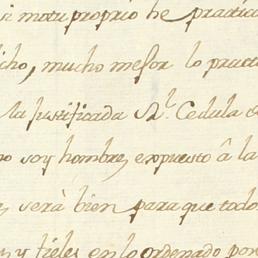 si motu proprio he practic
cho, mucho mejor lo pract
la justificada Rl. Cedula
soy hombre, expuesto â la
, será bien para que todo
y fieles en lo ordenado por